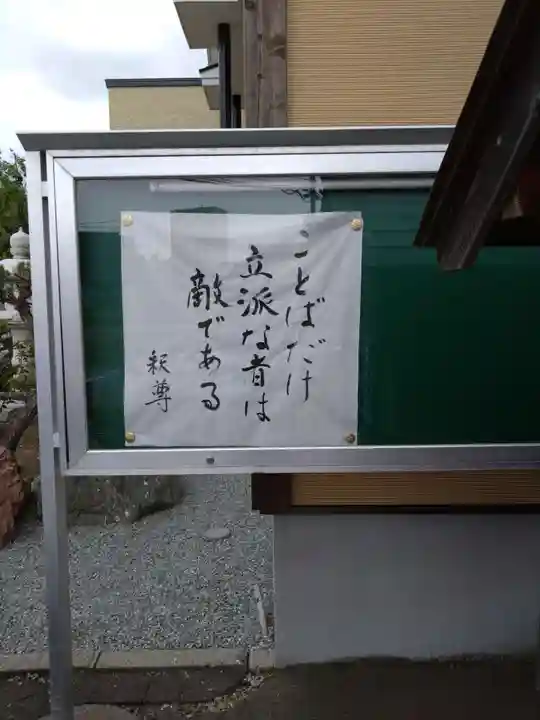 ことばだけ
立派な者は
敵である
釈尊